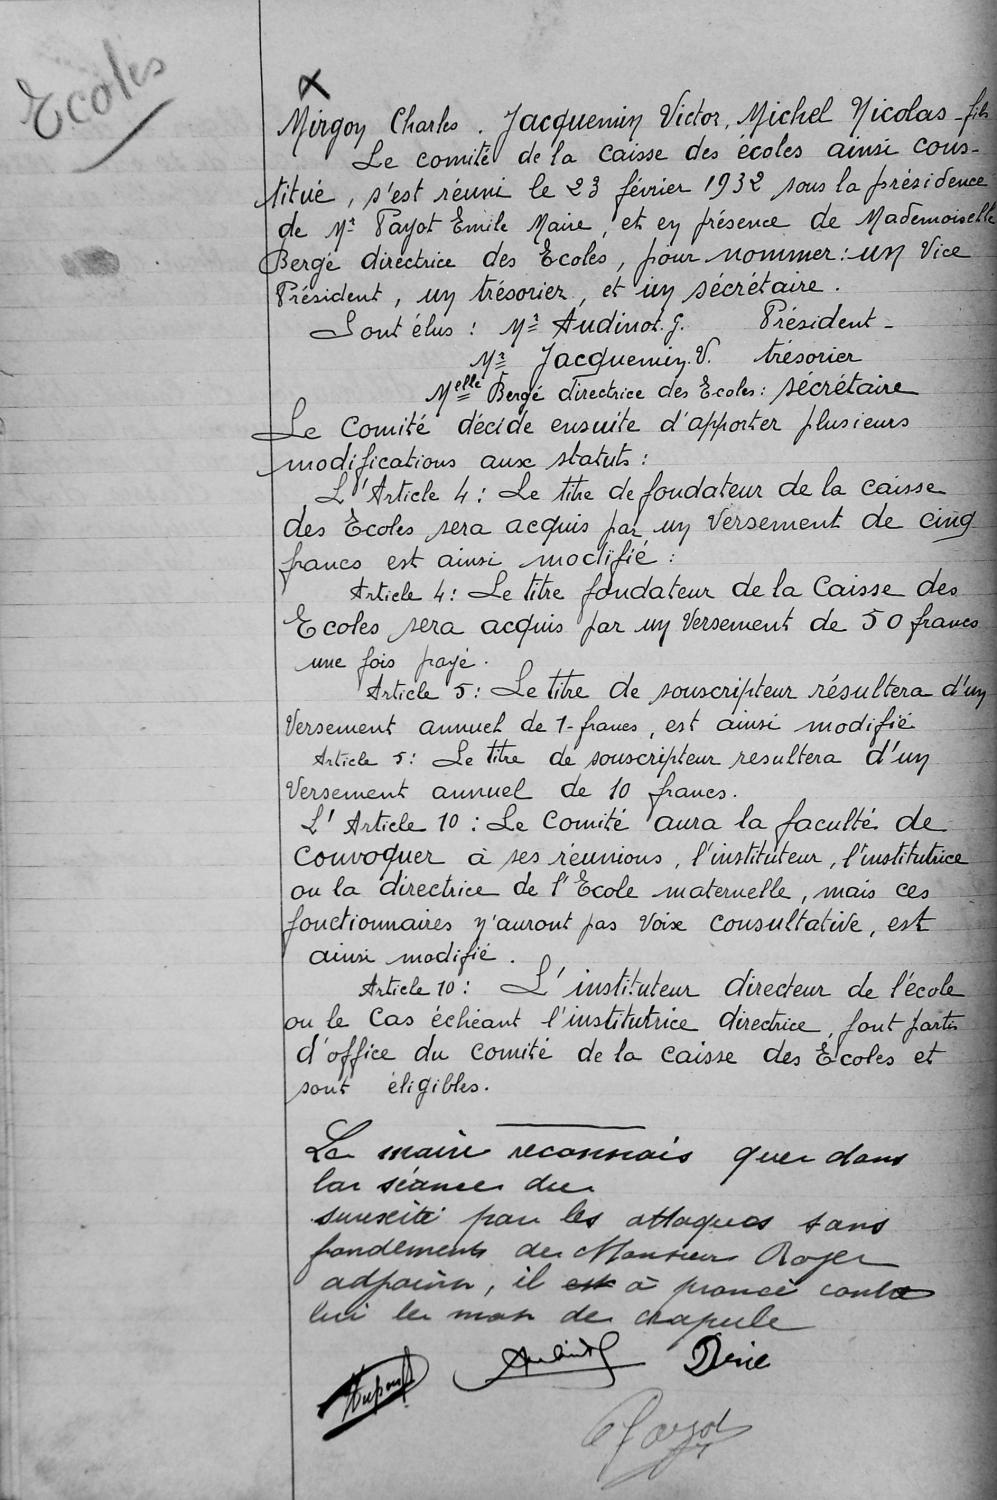 Ecoles
Mirgon Charles. Jacquemin Victor, Michel Nicolas - fils
Le comité de la Caisse des écoles ainsi cons-
titué, s'est réuni le 23 février 1932 sous la présidence
de Mr Payot Emile Maire, et en présence de Mademoiselle
Bergé directrice des Ecoles, pour nommer : un Vice
Président, un trésorier, et un sécrétaire.
Sont élus : Mr Audinot. G. Président -
Mr Jacquemin. V. trésorier
Melle Bergé directrice des Ecoles : sécrétaire
Le Comité décide ensuite d'apporter plusieurs
modifications aux statuts :
L'Article 4 : Le titre de fondateur de la caisse
des Ecoles sera acquis par un Versement de cinq
francs est ainsi modifié :
Article 4 : Le titre fondateur de la Caisse des
Ecoles sera acquis par un Versement de 50 francs
une fois payé.
Article 5 : Le titre de souscripteur résultera d'un
Versement annuel de 1 - francs, est ainsi modifié
Article 5 : Le titre de souscripteur resultera d'un
Versement annuel de 10 francs.
L'Article 10 : Le Comité aura la faculté de
Convoquer à ses réunions, l'instituteur, l'institutrice
ou la directrice de l'Ecole maternelle, mais ces
fonctionnaires n'auront pas Voix consultative, est
ainsi modifié.
Article 10 : L'instituteur directeur de l'école
ou le Cas échéant l'institutrice directrice, font partie
d'office du Comité de la Caisse des Ecoles et
sont éligibles.
Le maire reconnais que dans
la séance du
surexité par les attaques sans
fondements de Monsieur Roger
adjoint, il est à prononcé contre
lui le mot de crapule
Audinot
Payot